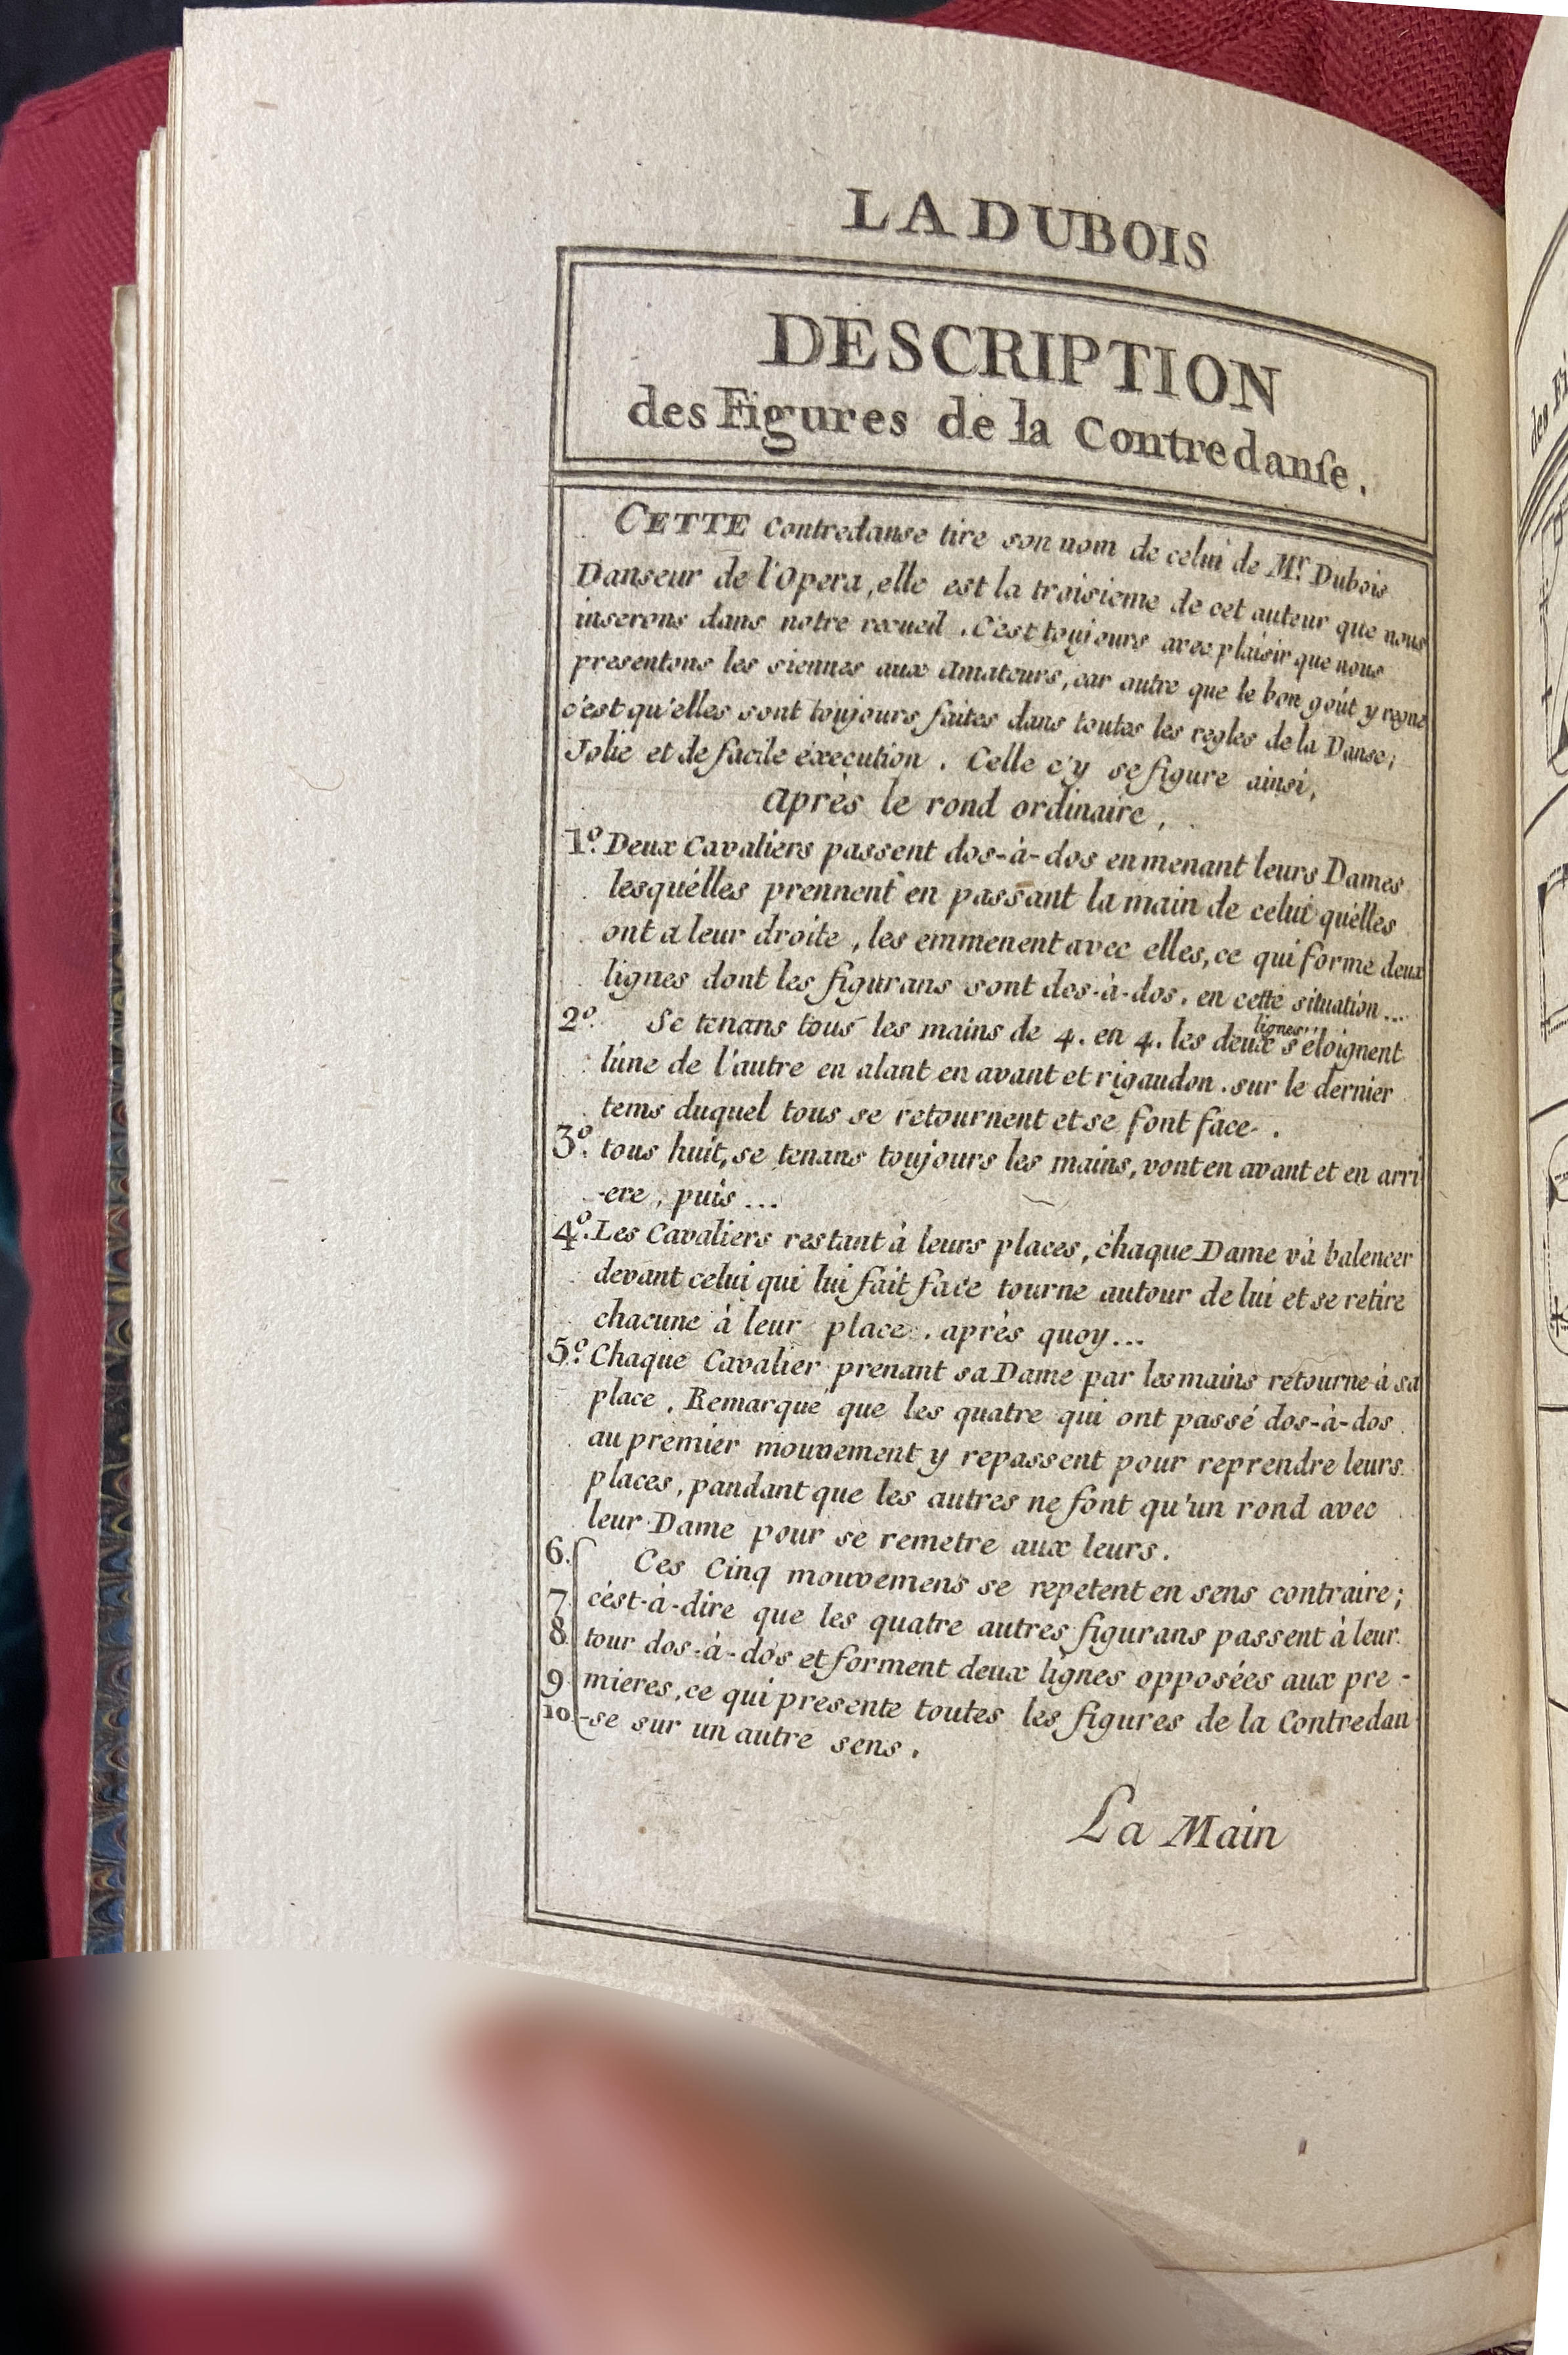 LA DUBOIS
DESCRIPTION
des Figures de la Contredanſe.
CETTE Contredanse tire son nom de celui de Mr. Dubois
Danseur de l'Opera, elle est la troisieme de cet auteur que nous
inserons dans notre recueil. C'est toujours avec plaisir que nous
presentons les siennes aux amateurs, car outre que le bon goût y regne
c'est qu'elles sont toujours faites dans toutes les regles de la Danse;
Jolie et de facile éxecution. Celle c'y se figure ainsi,
Après le rond ordinaire,
1o. Deux Cavaliers passent dos-à-dos en menant leurs Dames
lesquélles prennent en passant la main de celui quélles
ont a leur droite, les emmenent avec elles, ce qui forme deux
lignes dont les figurans sont dos-à-dos. en cette situation...
2o. Se tenans tous les mains de 4. en 4. les deux lignes s'éloignent
l'une de l'autre en alant en avant et rigaudon. sur le dernier
tems duquel tous se retournent et se font face.
3o. tous huit, se tenans toujours les mains, vont en avant et en arri
-ere, puis...
4o. Les Cavaliers restant à leurs places, chaque Dame và balencer
devant celui qui lui fait face tourne autour de lui et se retire
chacune à leur place. après quoy...
5o. Chaque Cavalier prenant sa Dame par les mains retourne à sa
place, Remarque que les quatre qui ont passé dos-à-dos
au premier mouvement y repassent pour reprendre leurs
places, pandant que les autres ne font qu'un rond avec
leur Dame pour se remetre aux leurs.
6. Ces Cinq mouvemens se repetent en sens contraire;
7. cést-à-dire que les quatre autres figurans passent à leur
8. tour dos-à-dos et forment deux lignes opposées aux pre-
9. mieres, ce qui presente toutes les figures de la Contredan
10. -se sur un autre sens.
La Main
des Fi